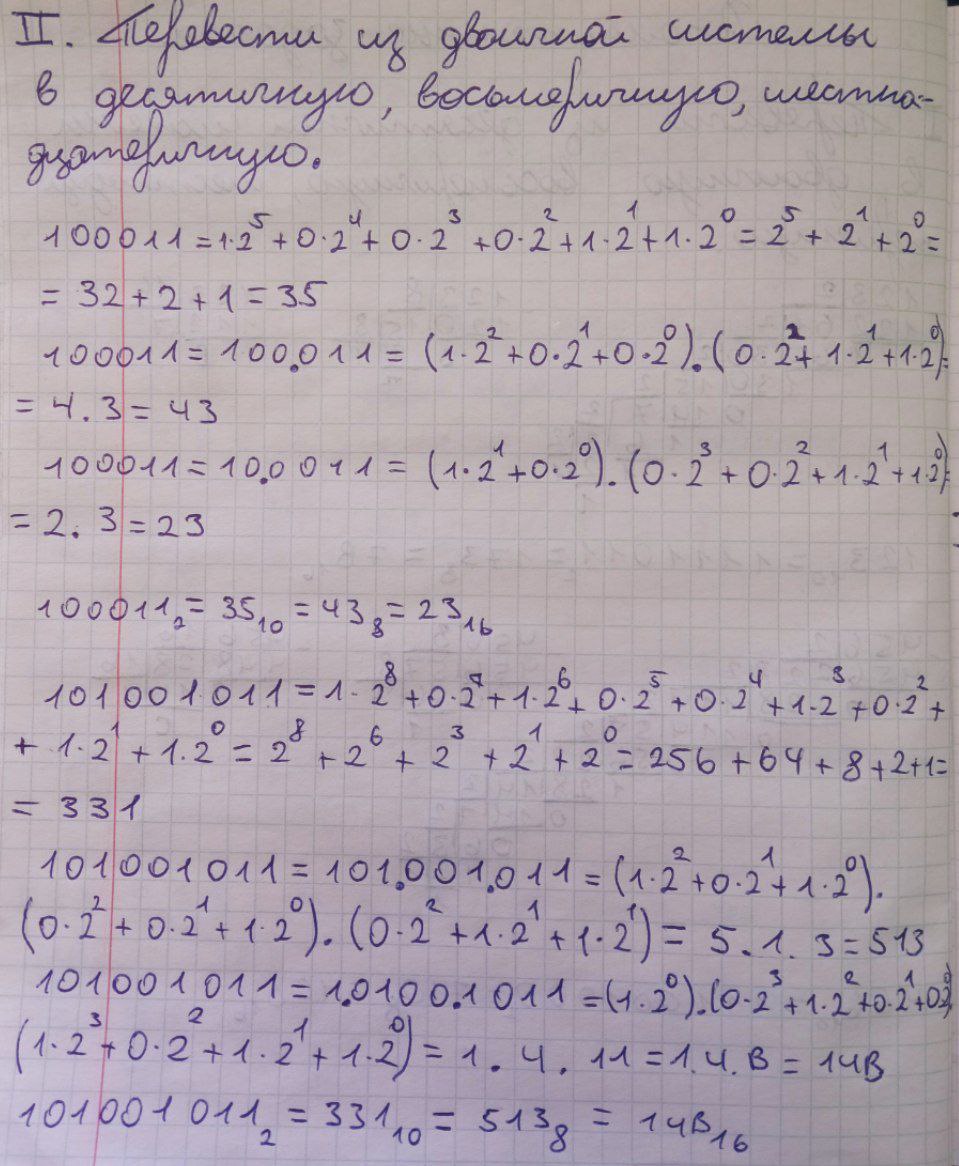 II. Перевести из двоичной системы
в десятичную, восьмеричную, шестна-
дцатеричную.
100011 = 1·2⁵ + 0·2⁴ + 0·2³ + 0·2² + 1·2¹ + 1·2⁰ = 2⁵ + 2¹ + 2⁰ =
= 32 + 2 + 1 = 35
100011 = 100.011 = (1·2² + 0·2¹ + 0·2⁰).(0·2² + 1·2¹ + 1·2⁰) =
= 4.3 = 43
100011 = 10.0011 = (1·2¹ + 0·2⁰).(0·2³ + 0·2² + 1·2¹ + 1·2⁰) =
= 2.3 = 23
100011₂ = 35₁₀ = 43₈ = 23₁₆
101001011 = 1·2⁸ + 0·2⁷ + 1·2⁶ + 0·2⁵ + 0·2⁴ + 1·2³ + 0·2² +
+ 1·2¹ + 1·2⁰ = 2⁸ + 2⁶ + 2³ + 2¹ + 2⁰ = 256 + 64 + 8 + 2 + 1 =
= 331
101001011 = 101.001.011 = (1·2² + 0·2¹ + 1·2⁰).
(0·2² + 0·2¹ + 1·2⁰).(0·2² + 1·2¹ + 1·2¹) = 5.1.3 = 513
101001011 = 1.0100.1011 = (1·2⁰).(0·2³ + 1·2² + 0·2¹ + 0·2⁰)
(1·2³ + 0·2² + 1·2¹ + 1·2⁰) = 1.4.11 = 1.4.B = 14B
101001011₂ = 331₁₀ = 513₈ = 14B₁₆